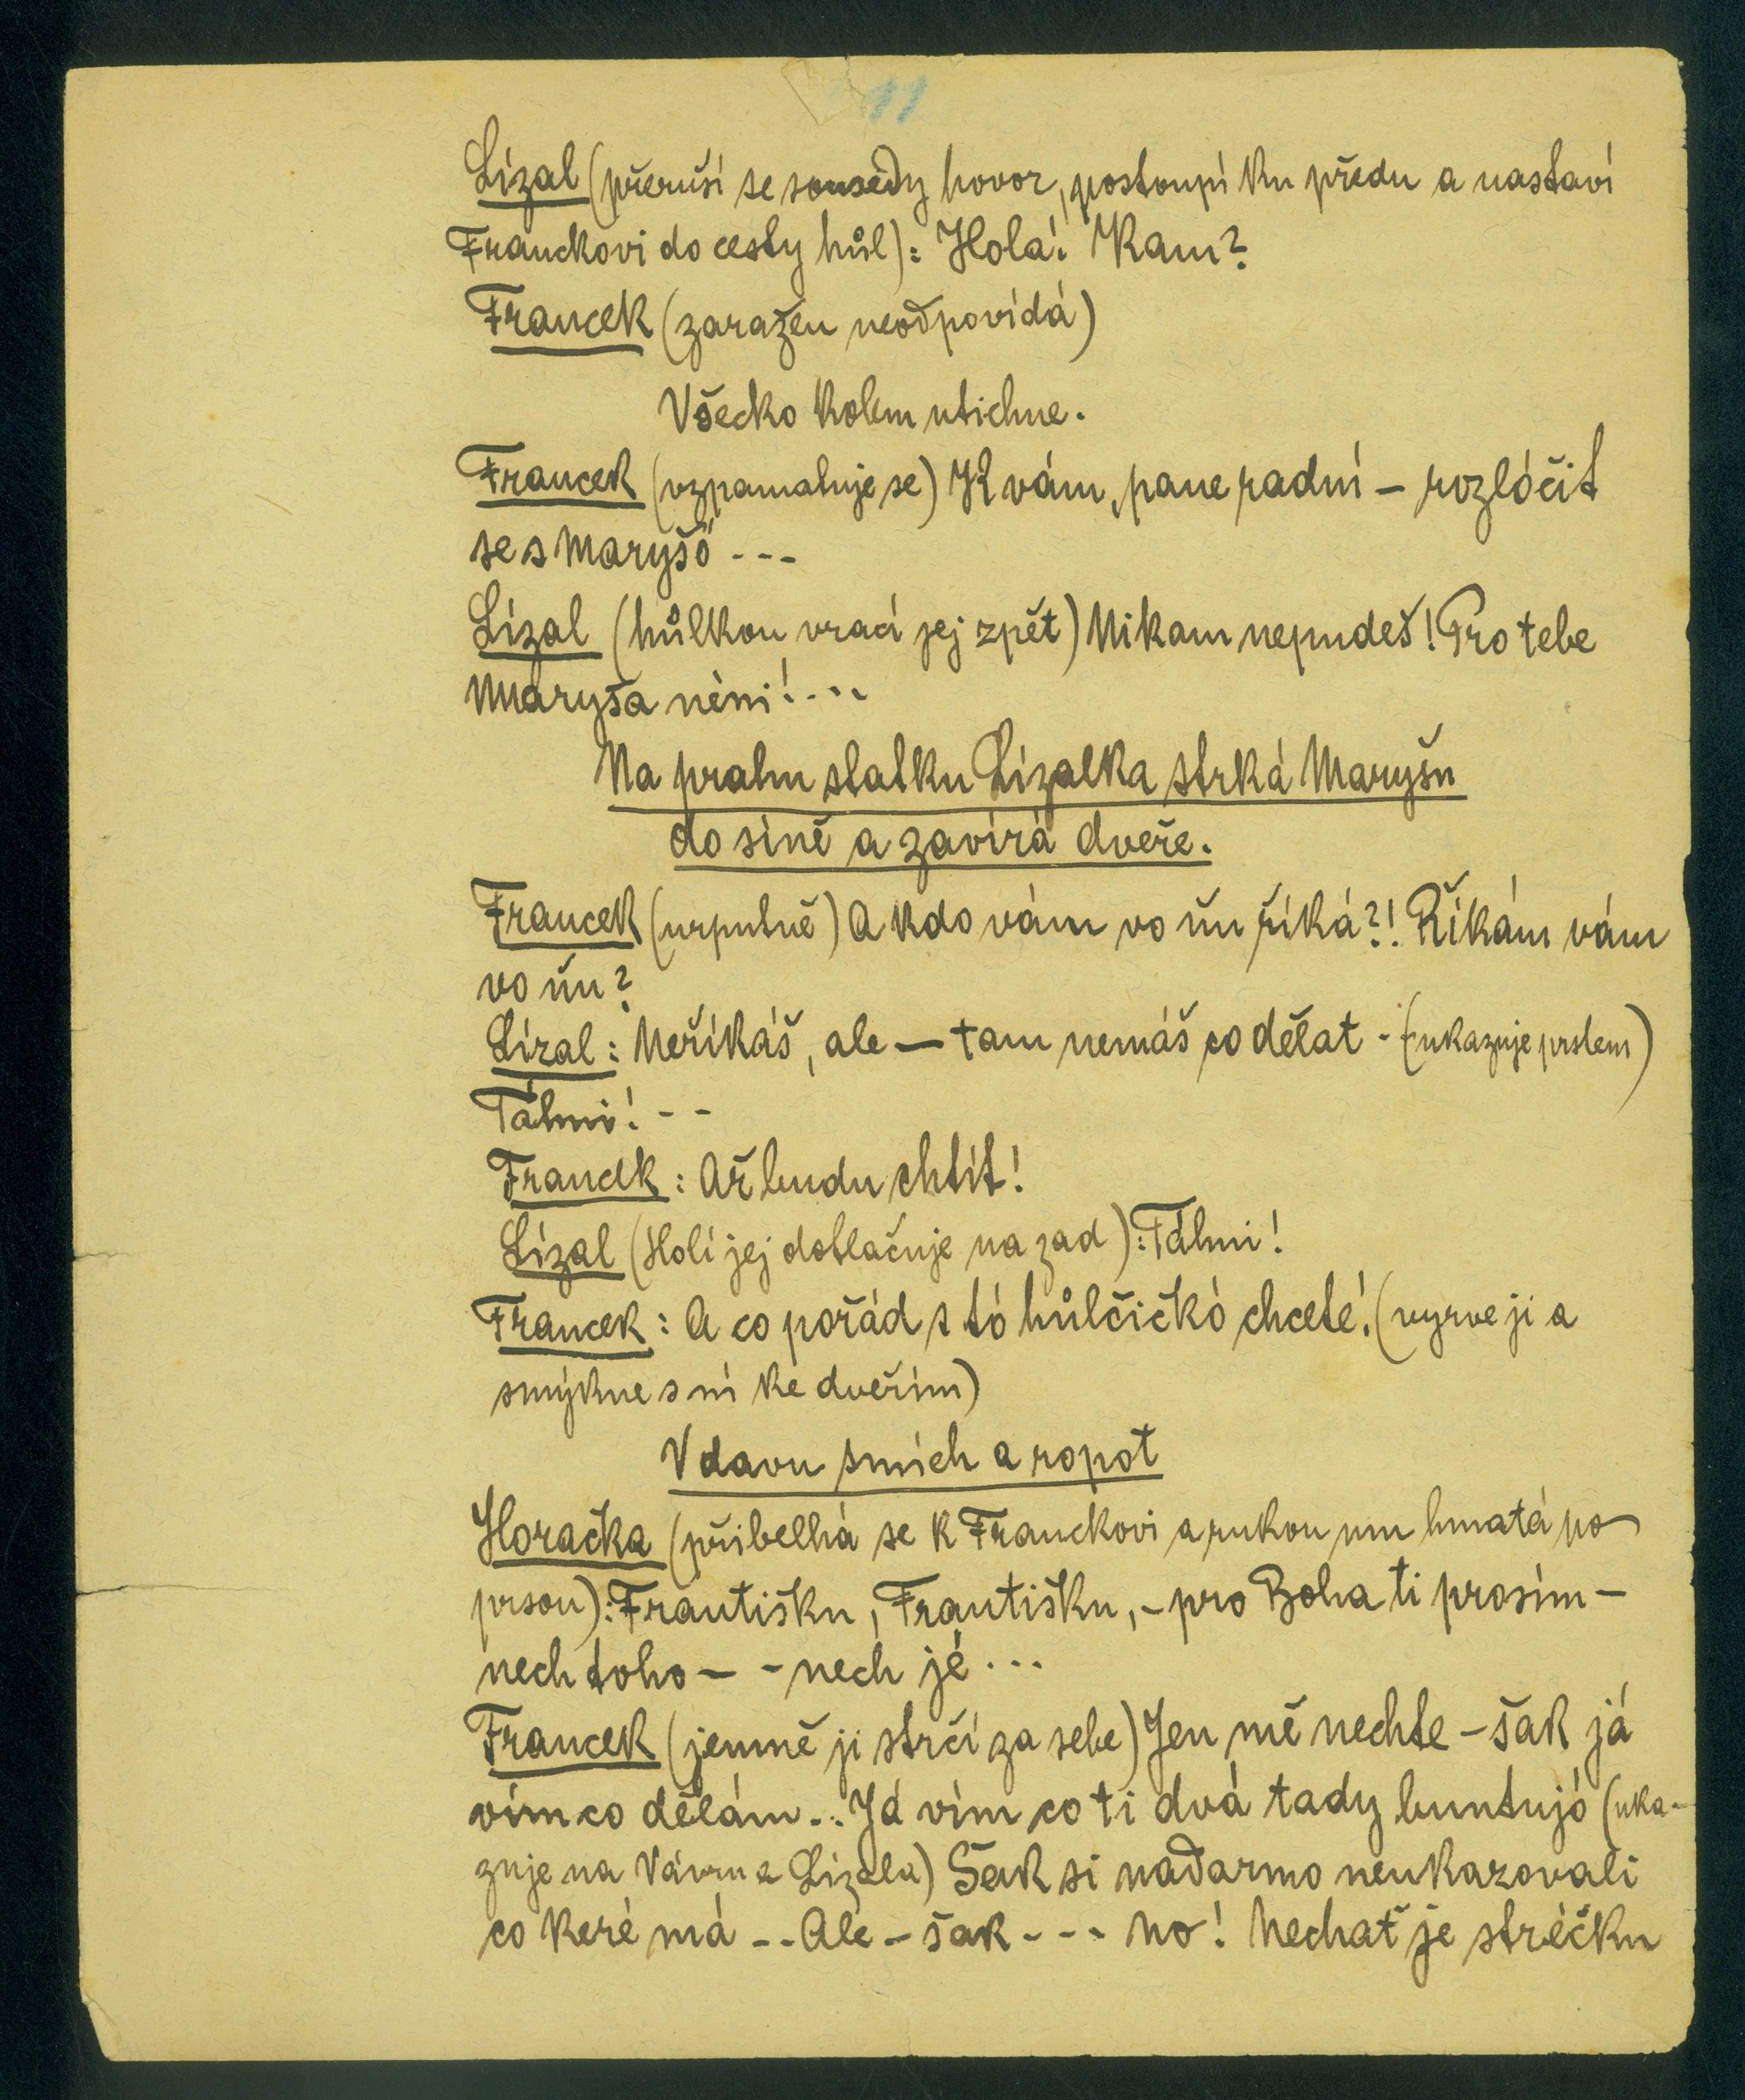 11
Lízal (přeruší se sousedy hovor, postoupí ku předu a nastaví
Franckovi do cesty hůl): Holá! Kam?
Francek (zaražen neodpovídá)
Všecko kolem utichne.
Francek (vzpamatuje se) K vám, pane radní – rozlóčit
se s Maryšó ---
Lízal (hůlkou vrací jej zpět) Nikam nepudeš! Pro tebe
Maryša néni! ...
Na prahu statku Lízalka strká Maryšu
do síně a zavírá dveře.
Francek (urputně) A kdo vám vo ňu říká?! Říkám vám
vo ňu?
Lízal: Neříkáš, ale — tam nemáš co dělat - (ukazuje prstem)
Táhni! --
Francek: Až budu chtít!
Lízal (Holí jej dotlačuje na zad): Táhni!
Francek: A co pořád s tó hůlčičkó chcete! (vyrve ji a
smýkne s ní ke dveřím)
V davu smích a ropot
Horačka (přibelhá se k Franckovi a rukou mu hmatá po
prsou): Františku, Františku, – pro Boha ti prosím –
nech toho – - nech jé ...
Francek (jemně ji strčí za sebe) Jen mě nechte – šak já
vím co dělám... Já vím co ti dvá tady buntujó (uka-
zuje na Vávru a Lízala) Šak si nadarmo neukazovali
co keré má -- Ale – šak --- No! Nechať je stréčku